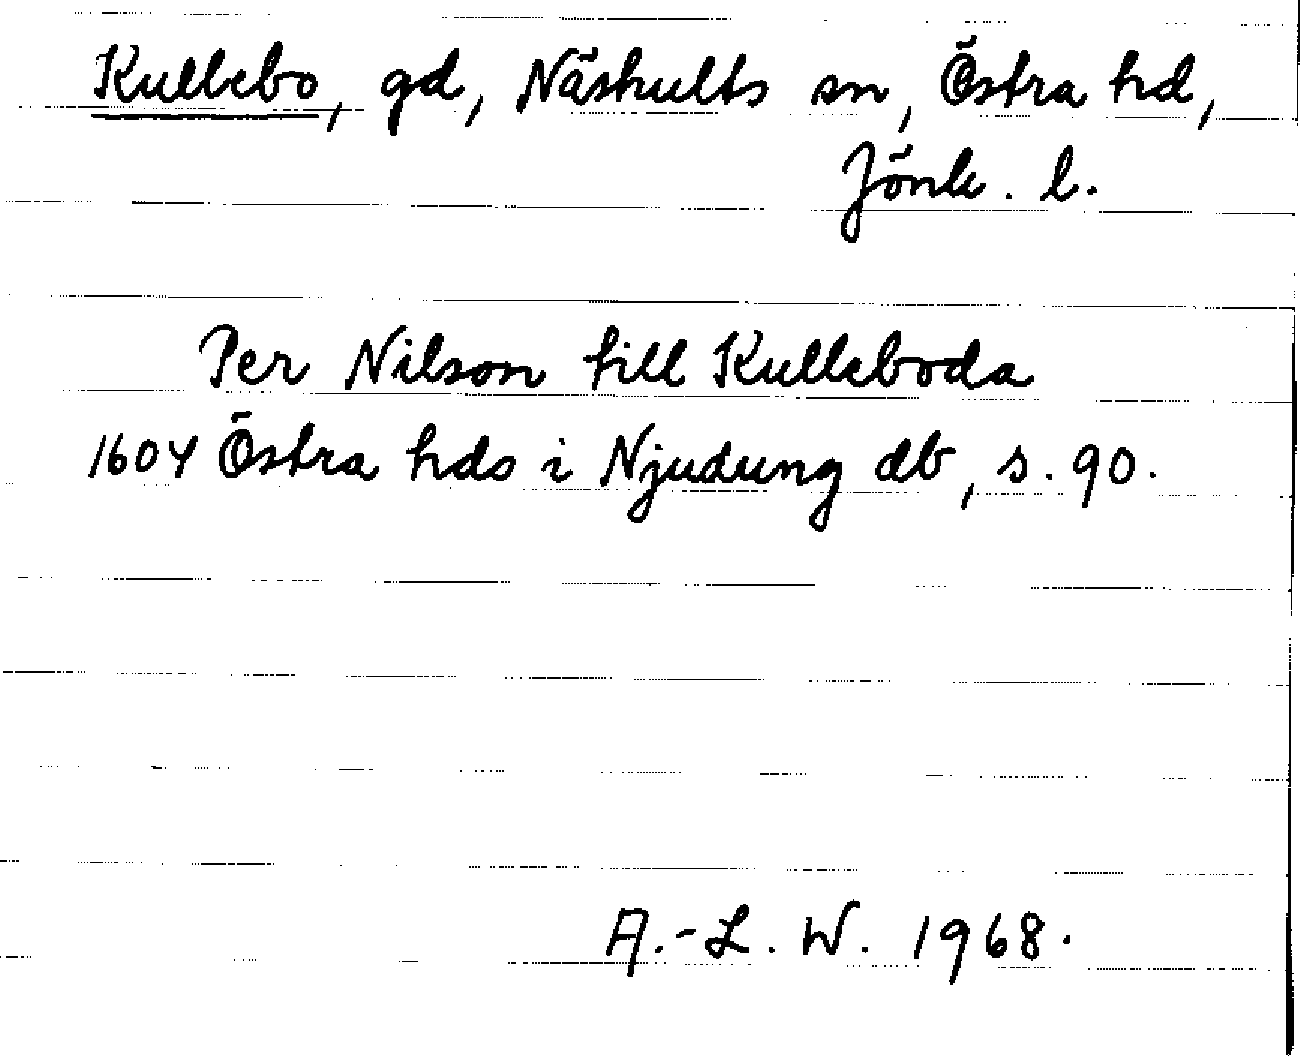 Kullebo, gd, Näshults sn, Östra hd,
Jönk. l.
Per Nilson till Kulleboda
1604 Östra hds i Njudung db, s. 90.
A.-L. W. 1968.